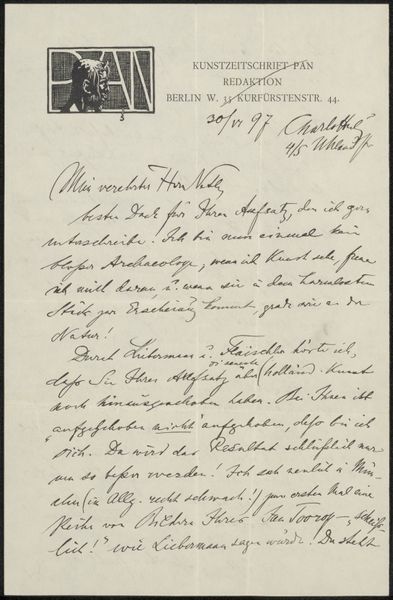 PAN
KUNSTZEITSCHRIFT PAN
REDAKTION
BERLIN W. 35 KURFÜRSTENSTR. 44.
30/VI 97
4/5 Uhland
Mein verehrter Herr
besten Dank für Ihren Aufsatz, den ich gern
unterschreibe. Ich bin nun einmal kein
bloßer Archaeologe, wenn ich Kunst sehe, freue
ich mich daran u. wenn sie in dem harmlosesten
Stück zur Erscheinung kommt, grade wie an der
Natur!
Durch Liebermann u. Flaischlen hörte ich,
daß Sie Ihren Aufsatz über holländ. Kunst
noch hinausgeschoben haben. Bei Ihnen ist
"aufgeschoben nicht aufgehoben, deß bin ich
sich. Da wird das Resultat schließlich nur
um so besser werden! Ich sah neulich in Mün-
chen (im Allg. recht schwach!) zum ersten Mal eine
Reihe von Bildern Ihres Jan Toorop – "scheuß-
lich!" wie Liebermann sagen würde! Da steht